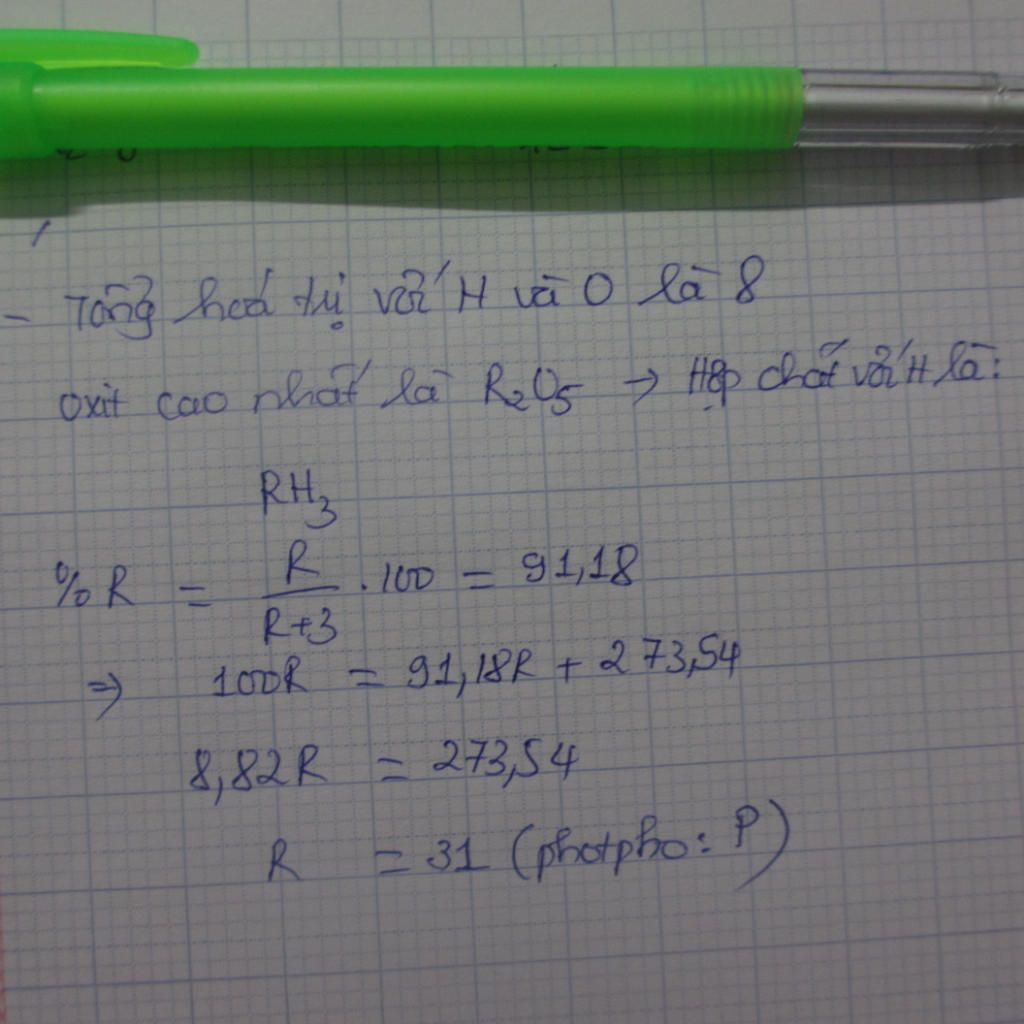 - Tổng hoá trị với H và O là 8
oxit cao nhất là R₂O₅ → Hợp chất với H là:
RH₃
%R = R/R+3 . 100 = 91,18
⇒ 100R = 91,18R + 273,54
8,82R = 273,54
R = 31 (photpho: P)